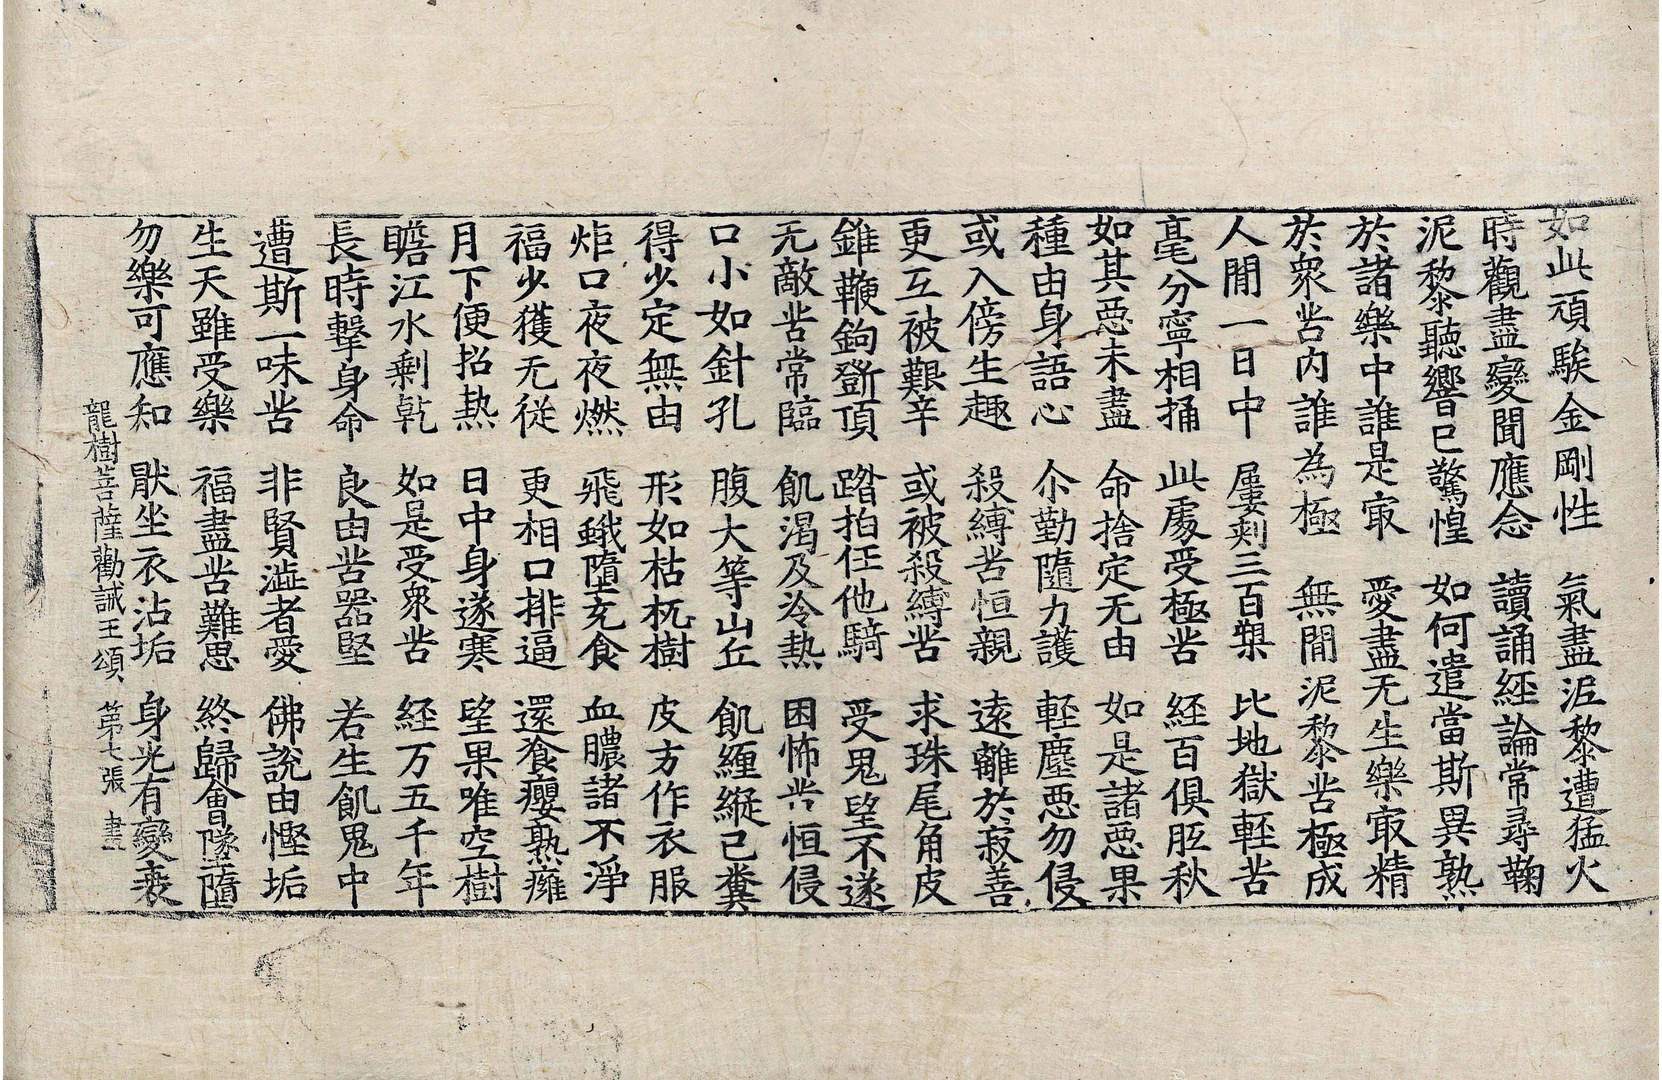 如此頑騃金剛性 氣盡泥黎遭猛火
時觀盡變聞應念 讀誦經論常尋鞠
泥黎聽響已驚惶 如何遣當斯異熟
於諸樂中誰是㝡 愛盡无生樂㝡精
於衆苦内誰為極 無間泥黎苦極成
人間一日中 屢刾三百槊 比地獄輕苦
毫分寧相捅 此處受極苦 経百俱胝秋
如其惡未盡 命捨定无由 如是諸惡果
種由身語心 尒勤隨力護 輕塵惡勿侵
或入傍生趣 殺縛苦恒親 遠離於寂善
更互被艱辛 或被殺縛苦 求珠尾角皮
錐鞭鉤頂 踏拍任他騎 受鬼望不遂
无敵苦常臨 飢渴及冷熱 困怖苦恒侵
口小如針孔 腹大等山丘 飢纏縱己糞
得少定無由 形如枯杌樹 皮方作衣服
炬口夜夜燃 飛蛾墮充食 血膿諸不淨
福少獲无従 更相口排逼 還飡癭熟癰
月下便招熱 日中身遂寒 望果唯空樹
瞻江水剩乾 如是受衆苦 経万五千年
長時擊身命 良由苦器堅 若生飢鬼中
遭斯一味苦 非賢澁者愛 佛說由慳垢
生天雖受樂 福盡苦難思 終歸會墜墮
勿樂可應知 猒坐衣沾垢 身光有變衰
龍樹菩薩勸誡王頌 第七張 畫